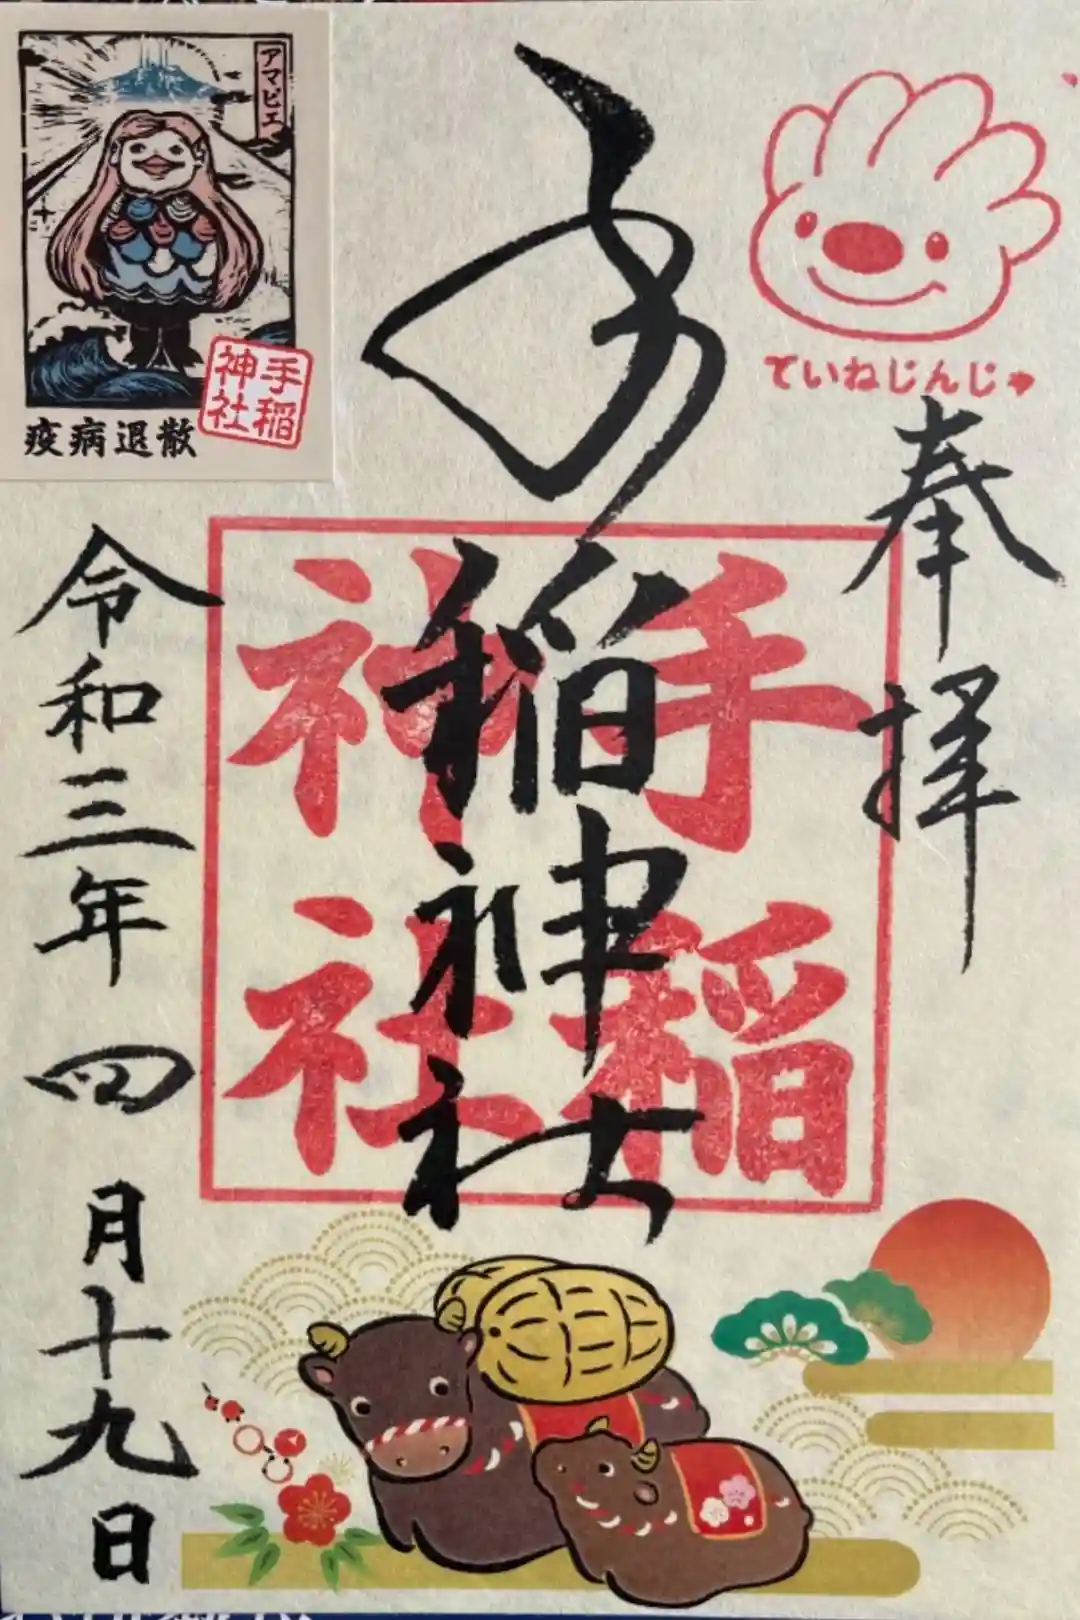 ていねじんじゃ
奉拝
手稲神社
手稲
神社
令和三年 四月十九日
アマビエ
手稲
神社
疫病退散